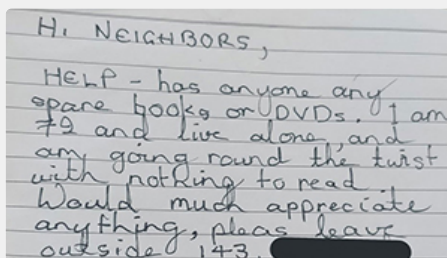 Hi NEIGHBORS,
HELP - has anyone any
spare books or DVDs. I am
72 and live alone, and
am going round the twist
with nothing to read.
Would much appreciate
anything, pleas leave
outside 143.